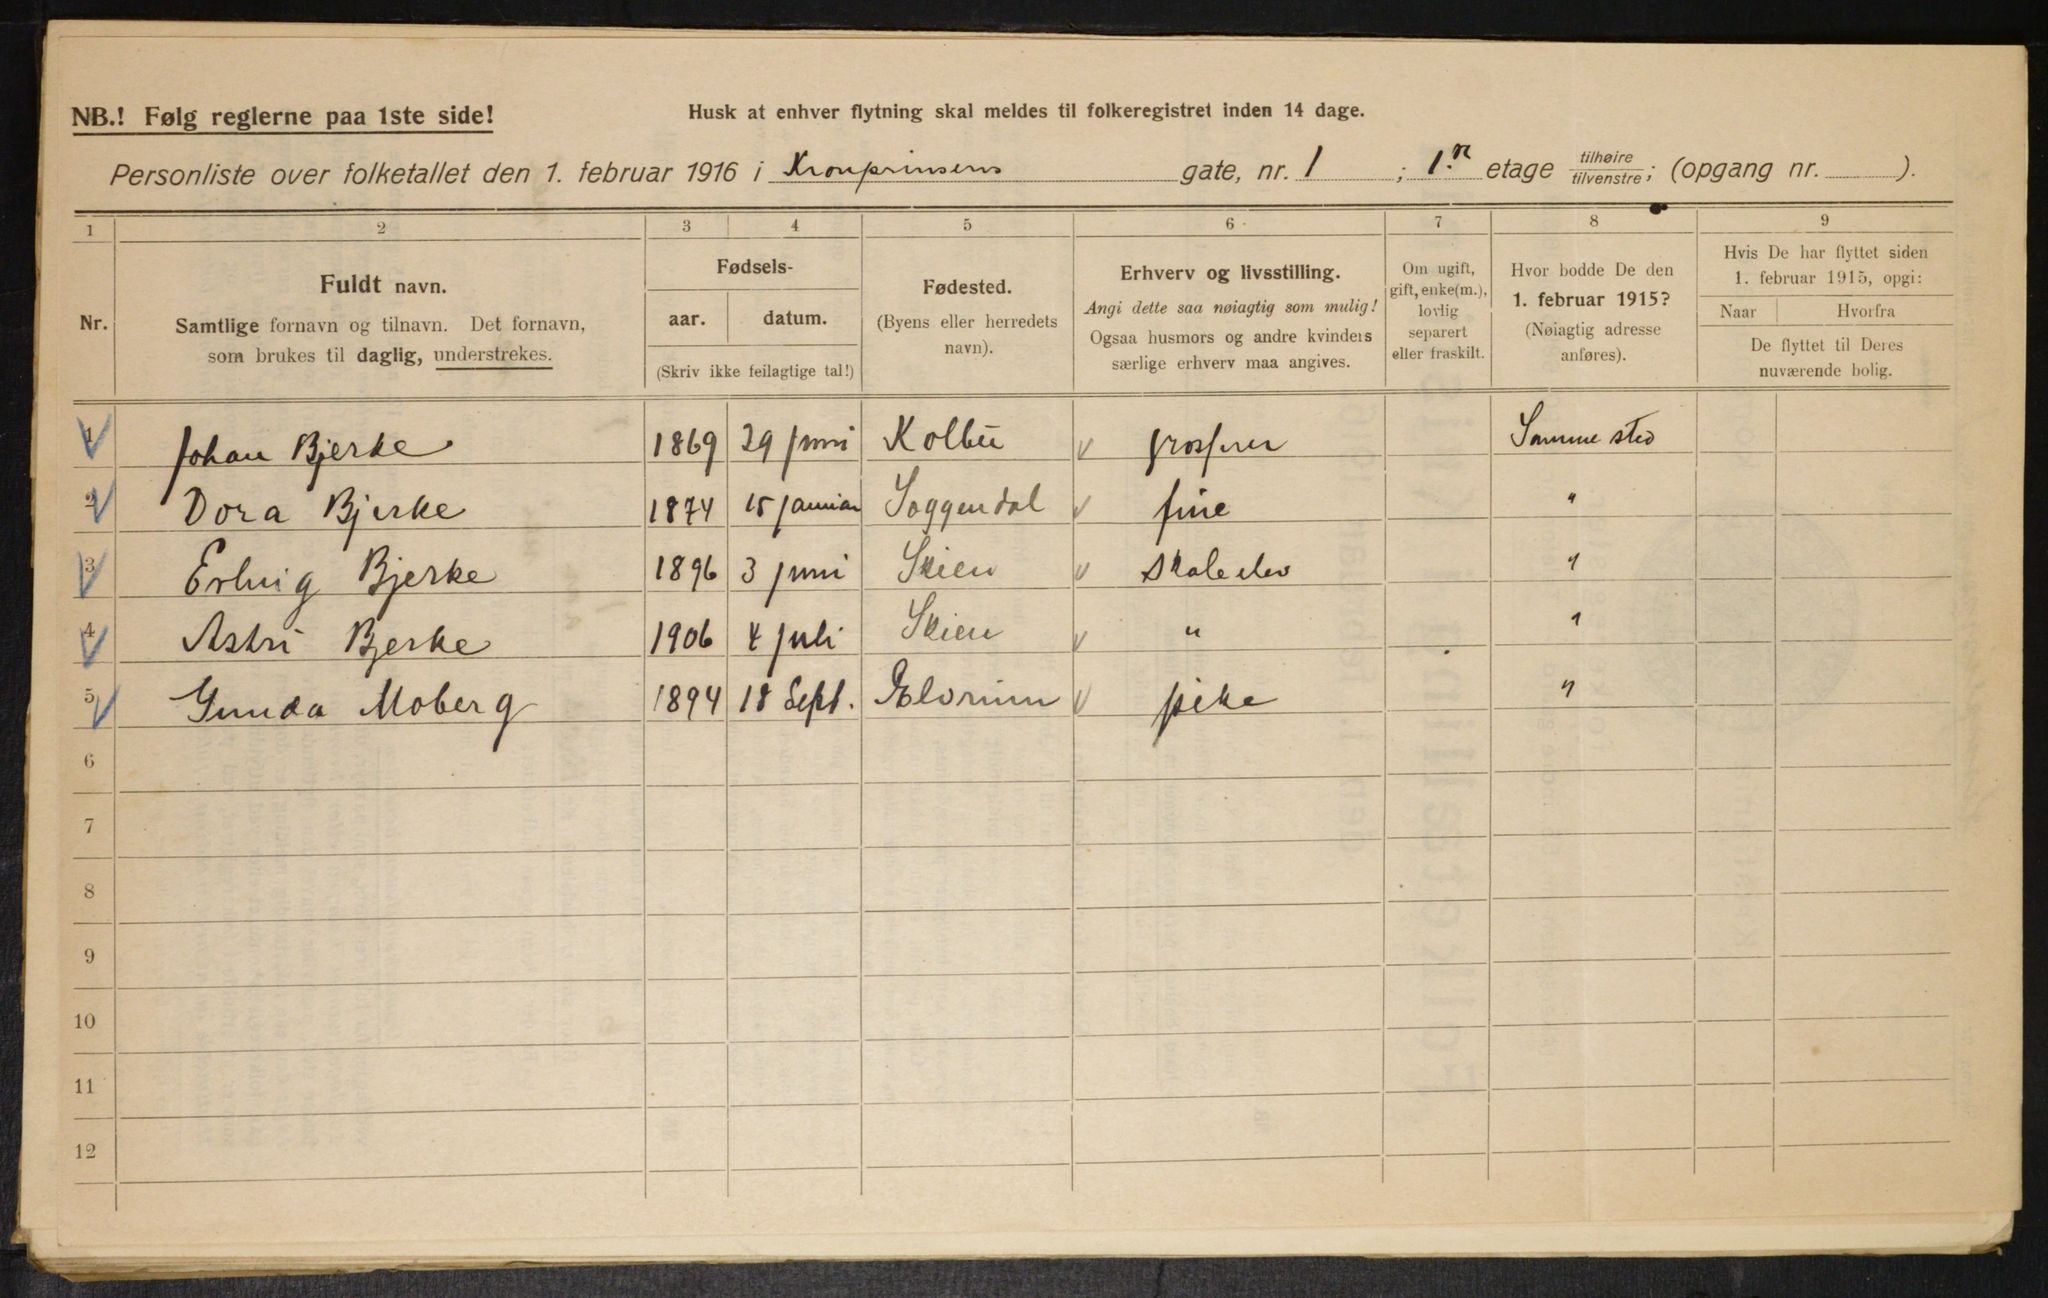 NB.! Følg reglerne paa 1ste side!
Husk at enhver flytning skal meldes til folkeregistret inden 14 dage.
Personliste over folketallet den 1. februar 1916 i Kronprinsens gate, nr. 1 ; 1. etage tilhøire tilvenstre; (opgang nr. ).
1 2 3 4 5 6 7 8 9
Nr.
Fuldt navn.
Samtlige fornavn og tilnavn. Det fornavn,
som brukes til daglig, understrekes.
Fødsels-
aar. datum.
(Skriv ikke feilagtige tal!)
Fødested.
(Byens eller herredets
navn).
Erhverv og livsstilling.
Angi dette saa nøiagtig som mulig!
Ogsaa husmors og andre kvinders
særlige erhverv maa angives.
Om ugift,
gift, enke(m.),
lovlig
separert
eller fraskilt.
Hvor bodde De den
1. februar 1915?
(Nøiagtig adresse
anføres).
Hvis De har flyttet siden
1. februar 1915, opgi:
Naar Hvorfra
De flyttet til Deres
nuværende bolig.
1 Johan Bjerke 1869 29 juni Kolbu Samme sted
2 Dora Bjerke 1874 15 januar Soggendal "
3 Erling Bjerke 1896 3 juni Skien Skoleelev "
4 Astri Bjerke 1906 4 juli Skien " "
5 Gunda Moberg 1894 18 Sept. Elverum pike "
6
7
8
9
10
11
12